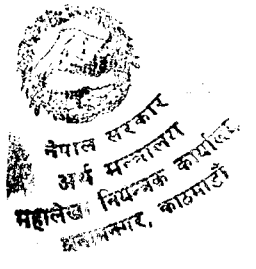 नेपाल सरकार
अर्थ मन्त्रालय
महालेखा नियन्त्रक कार्यालय,
अनामनगर, काठमाडौं